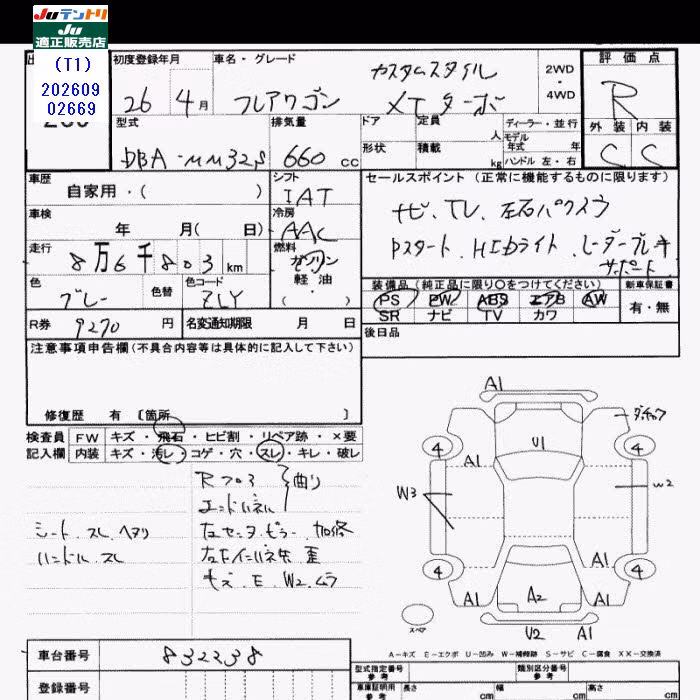 JUテントリ
JU
適正販売店
(T1)
202609
02669
初度登録年月
車名・グレード
評 価 点
26年 4月
フレアワゴン
カスタムスタイル
XT ターボ
2WD
4WD
R
型式
排気量
ドア
定員
人
ディーラー・並行
モデル
年式 年
外 装
内 装
DBA-MM32S
660 cc
形状
積載
kg
ハンドル 左・右
C
C
車歴
自家用・( )
シフト
IAT
セールスポイント (正常に機能するものに限ります)
車検
年 月( 日)
冷房
AAC
ナビ、TV、左右パワスラ
走行
8万6千803 km
燃料
ガソリン
軽油
( )
Pスタート、HIDライト、レーダーブレーキ
サポート
色
グレー
色替
色コード
ZLY
装備品 (純正品に限り○をつけてください)
新車保証書
PS PW ABS エアB AW
SR ナビ TV カワ
有・無
R券
9270 円
名変通知期限 月 日
後日品
注意事項申告欄 (不具合内容等は具体的に記入して下さい)
修復歴 有 [箇所 ]
検査員
記入欄
FW キズ・飛石・ヒビ割・リペア跡・×要
内装 キズ・汚レ・コゲ・穴・スレ・キレ・破レ
Rフロア
エンドパネル
曲り
シート スレ ヘタリ
ハンドル スレ
左センターピラー 加修
歪
キズ・E・W2 ムラ
A1
ダチャク
4
4
A1
U1
W3
W2
A1
4
4
A1
A2
A1
U2
A1
スペア
A-キズ E-エクボ U-凹み W-補修跡 S-サビ C-腐食 XX-交換済
車台番号
832238
登録番号
型式指定番号
参考
類別区分番号
参考
車庫証明用
参考
長さ
cm
幅
cm
高さ
cm